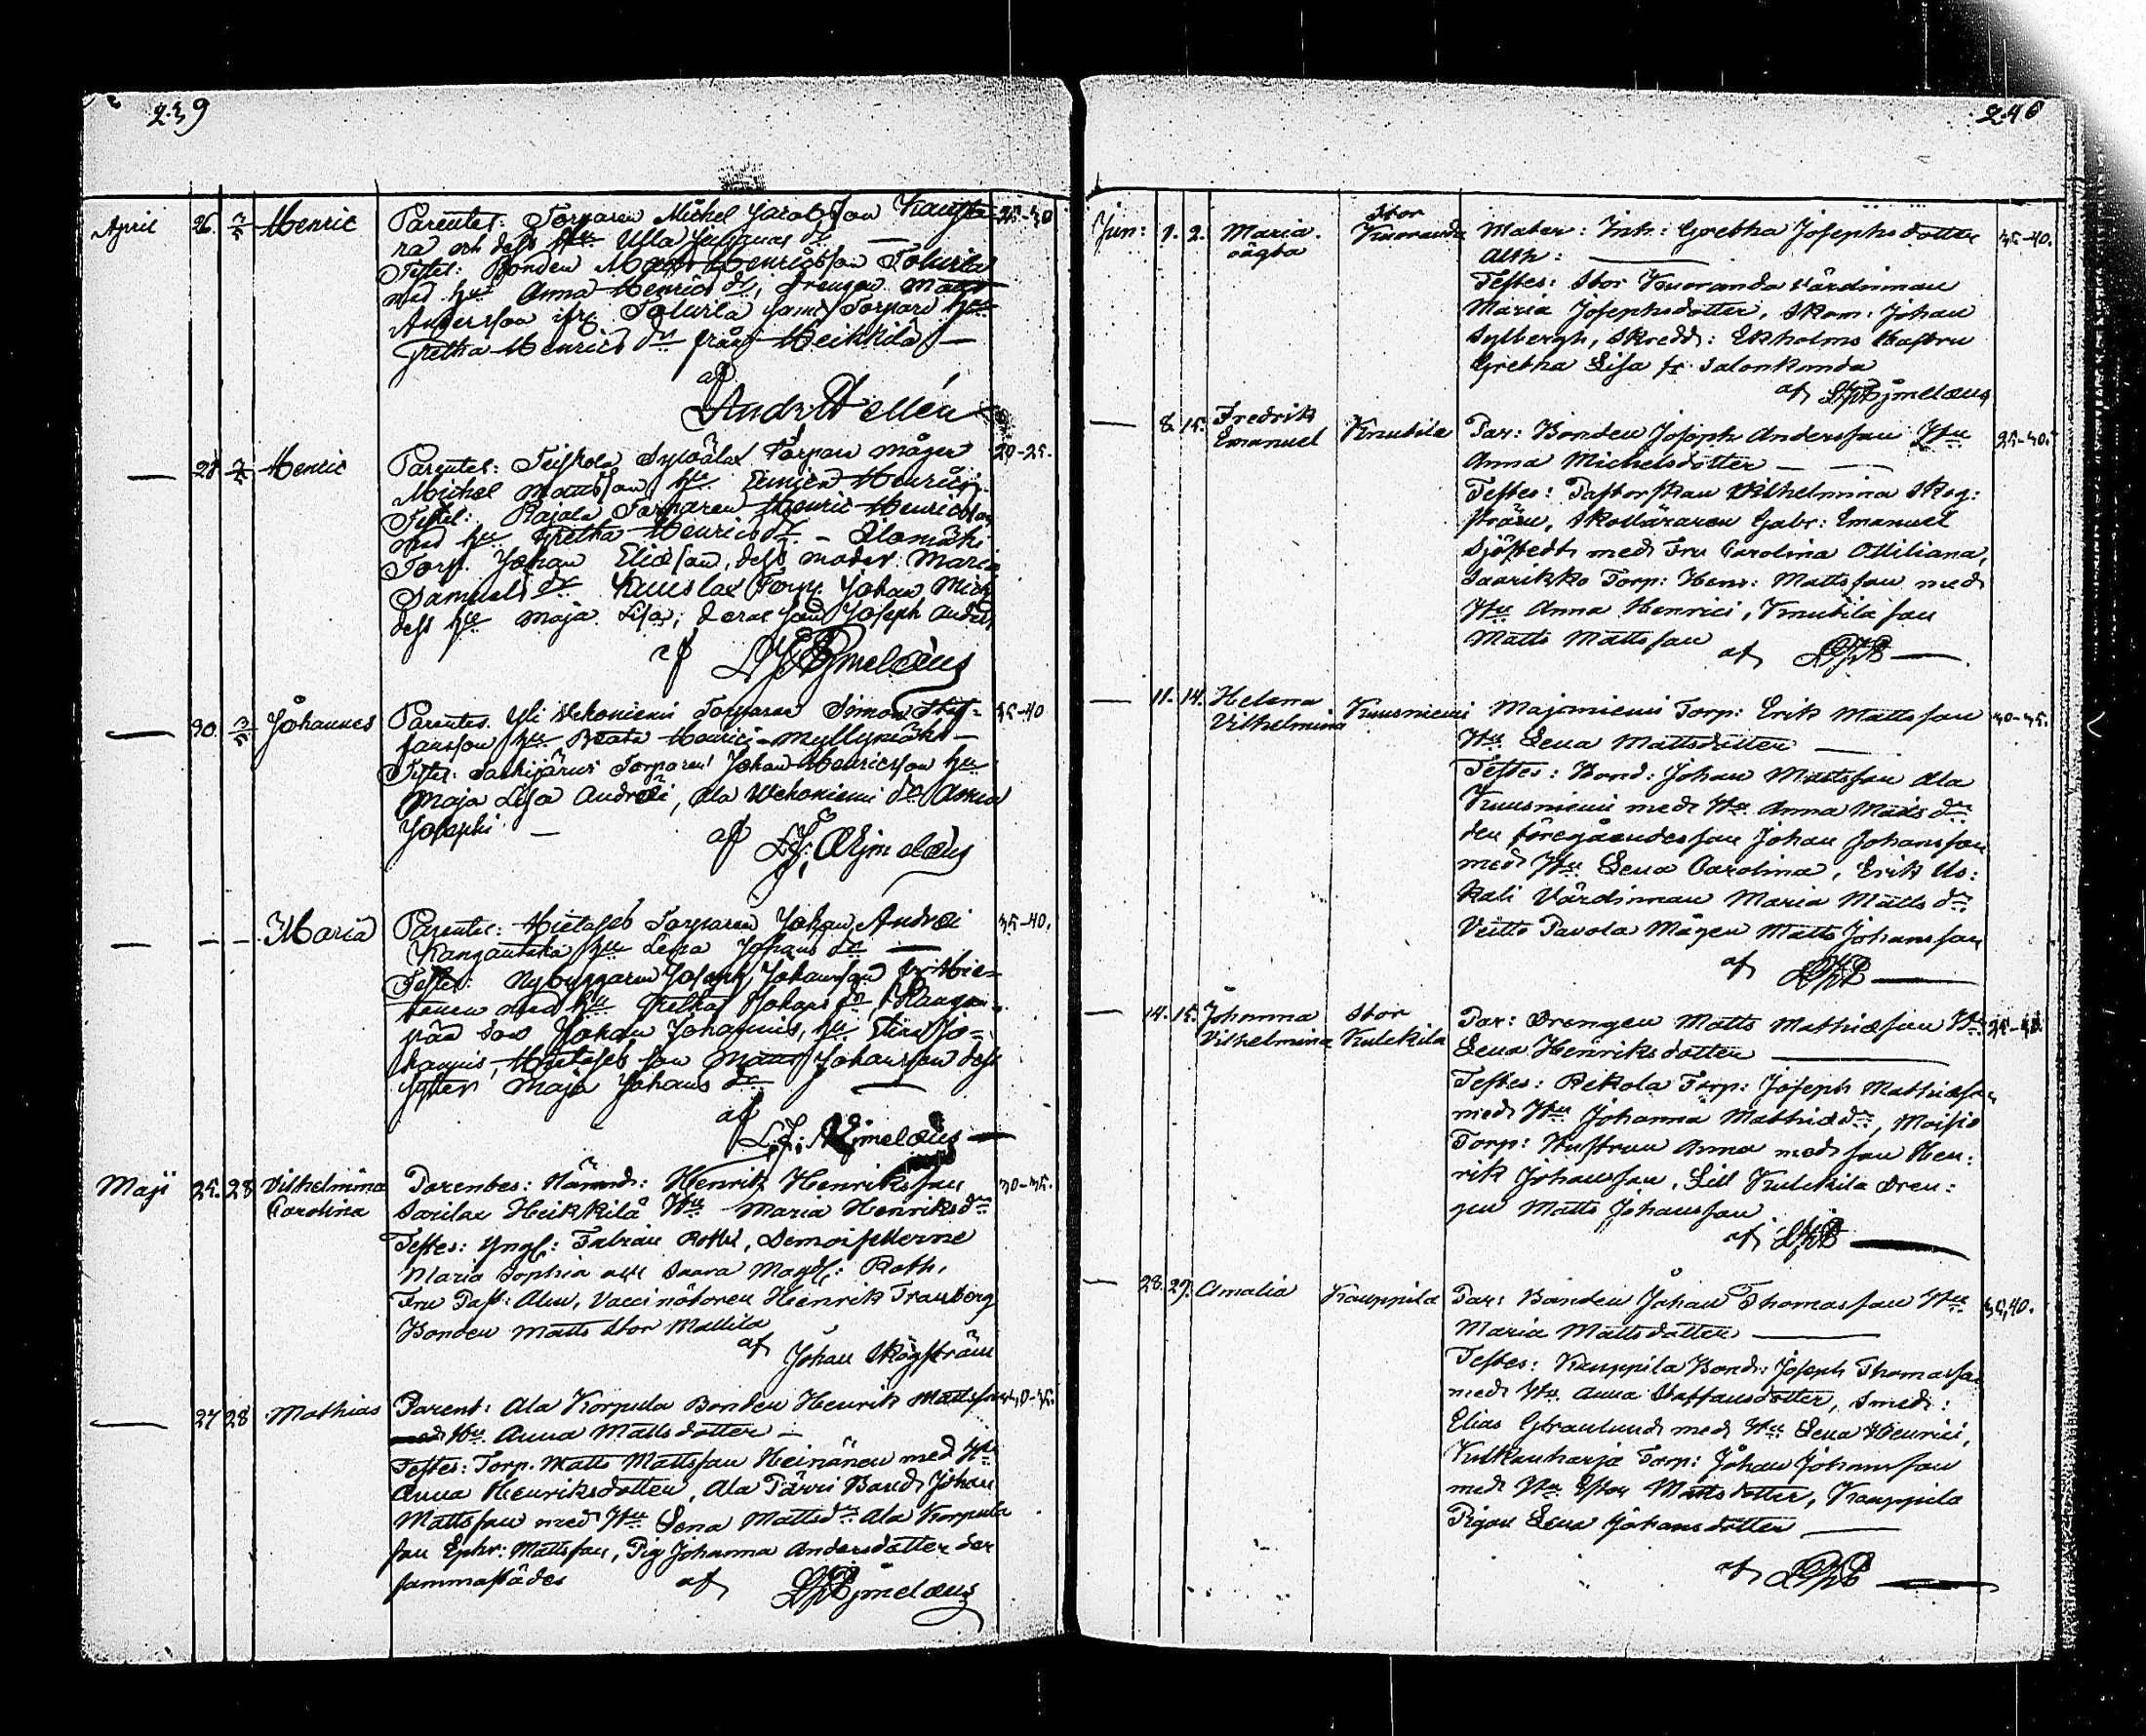 239
April 26. 3/5 Henric Parentes: Torparen Michel Jacobsson 25-30
ra och dess Hu Ulla
Testes: Bonden Matts Henricsson Tolurila
med Hu Anna Henrics dr, drengen Matts
Andersson ifr. Tolurila samt Torpare Hu
Gretha Henrics dr från Heikkilä —
af
And: Hellén
— 28 Henric Parentes: Torpare mågen 20-25.
Michel Mattsson Hu Henrici
Testes: Rajala Torparen Henric Henricsson
med Hu Gretha Henrics dr — Alomäki
Torp. Johan Eliæson, dess moder Maria
Samuels dr Torp. Johan Mich
dess Hu Maja Lisa; deras son Joseph Andr
af L J Bjmelæus
— 30. 3/5 Johannes Parentes. Yli Wekoniemi Torparen Simon Staf-
fansson Hu Beata Henrici — Myllymäki — 35-40
Testes: Torparen Johan Henricsson Hu
Maja Lisa Andræi, Ala Wekoniemi dr Anna
Josephi — af L.J. Bjmelæus
— — — Maria Parentes: Torparen Johan Andræi 35-40.
Hu Lena Johans dr —
Testes: Nybyggaren Joseph Johansson
med Hu Gretha Johans dr,
Johan Johannis, Hu Stina Jo-
hannis, son Matts Johansson dess
syster Maja Johans dr —
af
L.J. Bjmelæus —
Maji 25. 28 Vilhelmina Parentes: Nämnd: Henrik Henriksson 30-35.
Carolina Sarilax Heikkilä Hu Maria Henriks dr
Testes: Yngl: Fabian Roth, Demoisellerne
Maria Sophia och Saara Magd: Roth,
Fru Past: Alm, Vaccinatoren Henrik Tranberg
Bonden Matts Stor Mattila
af Johan Skogström
— 27 28 Mathias Parent: Ala Korpula Bonden Henrik Mattsson 30-35.
med Hu. Anna Mattsdotter —
Testes: Torp. Matts Mattsson Heinänen med Hu
Anna Henriksdotter, Ala Pärri Bond: Johan
Mattsson med Hu Lena Mattsdr Ala Korpula
son Ephr: Mattsson, Pig Johanna Andersdotter der
sammastädes af LJBjmelæus
240
Jun: 1. 2. Maria. Stor Mater: Inh: Gretha Josephsdotter 35-40.
oägta Knoranda
Testes: Stor Knoranda värdinnan
Maria Josephsdotter, Skom: Johan
Sylbergh, Skredd: Ekholms Hustru
Gretha Lisa fr. Salonkanda
af LJBjmelæus
— 8. 15. Fredrik Knutila Par: Bonden Joseph Andersson Hu 25-30.
Emanuel Anna Michelsdotter —
Testes: Pastorskan Vilhelmina Skog:
ström, Skolläraren Gabr: Emanuel
Sjöstedt med Fru Carolina Ottiliana,
Saarikko Torp: Henr: Mattsson med
Hu Anna Henrici, Knutila son
Matts Mattsson af LJB —
— 11. 14. Helena Kuusniemi Majaniemi Torp: Erik Mattsson 30-35.
Vilhelmina Hu Lena Mattsdotter —
Testes: Bond: Johan Mattsson Ala
Kuusniemi med Hu. Anna Matts dr
den föregåendes son Johan Johansson
med Hu Lena Carolina, Erik Us:
kali Värdinnan Maria Matts dr
Veitto Pavola Mågen Matts Johansson
af LJB —
— 14. 15. Johanna Stor Par: Drengen Matts Mathiæson Hu
Vilhelmina Kulckila Lena Henriksdotter —
Testes: Rekola Torp: Joseph Mathiæson
med Hu Johanna Mathiædr, Moisio
Torp: Hustrun Anna med son Hen:
rik Johansson, Lill Kulckila Dren:
gen Matts Johansson
af LJB —
— 28. 29. Amalia Kauppila Par: Bonden Johan Thomasson Hu 35,40.
Maria Mattsdotter —
Testes: Kauppila Bond: Joseph Thomasson
med Hu Anna Staffansdotter, Smed:
Elias Granlund med Hu Lena Henrici,
Kulkanharja Torp: Johan Johansson
med Hu Ester Mattsdotter, Kauppila
Pigan Lena Johansdotter —
af LJB —